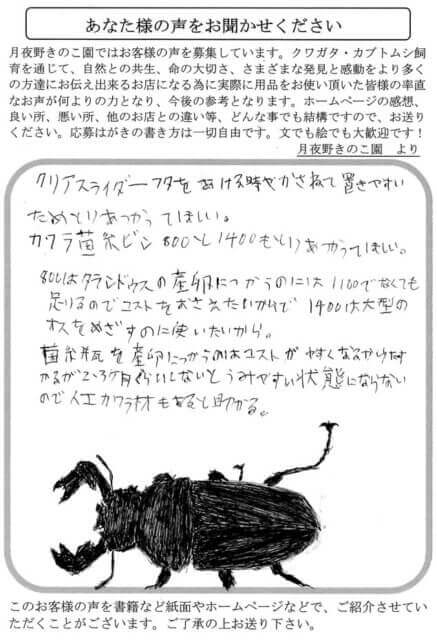 あなた様の声をお聞かせください
月夜野きのこ園ではお客様の声を募集しています。クワガタ・カブトムシ飼
育を通じて、自然との共生、命の大切さ、さまざまな発見と感動をより多く
の方達にお伝え出来るお店になる為に実際に用品をお使い頂いた皆様の率直
なお声が何よりの力となり、今後の参考となります。ホームページの感想、
良い所、悪い所、他のお店との違い等、どんな事でも結構ですので、お送り
ください。応募はがきの書き方は一切自由です。文でも絵でも大歓迎です！
月夜野きのこ園　より
クリアスライダーフタをあける時やかさねて置きやすい
ためとりあつかってほしい。
カワラ菌糸ビン800と1400もとりあつかってほしい。
800はタランドゥスの産卵につかうのには1100でなくても
足りるのでコストをおさえたいからで 1400は大型の
オスをめざすのに使いたいから。
菌糸瓶を産卵につかうのはコストがやすくなるから助
かるが2〜3ヶ月ぐらいしないとうみやすい状態にならない
ので人工カワラ材もあると助かる。
このお客様の声を書籍など紙面やホームページなどで、ご紹介させてい
ただくことがございます。ご了承の上お送り下さい。